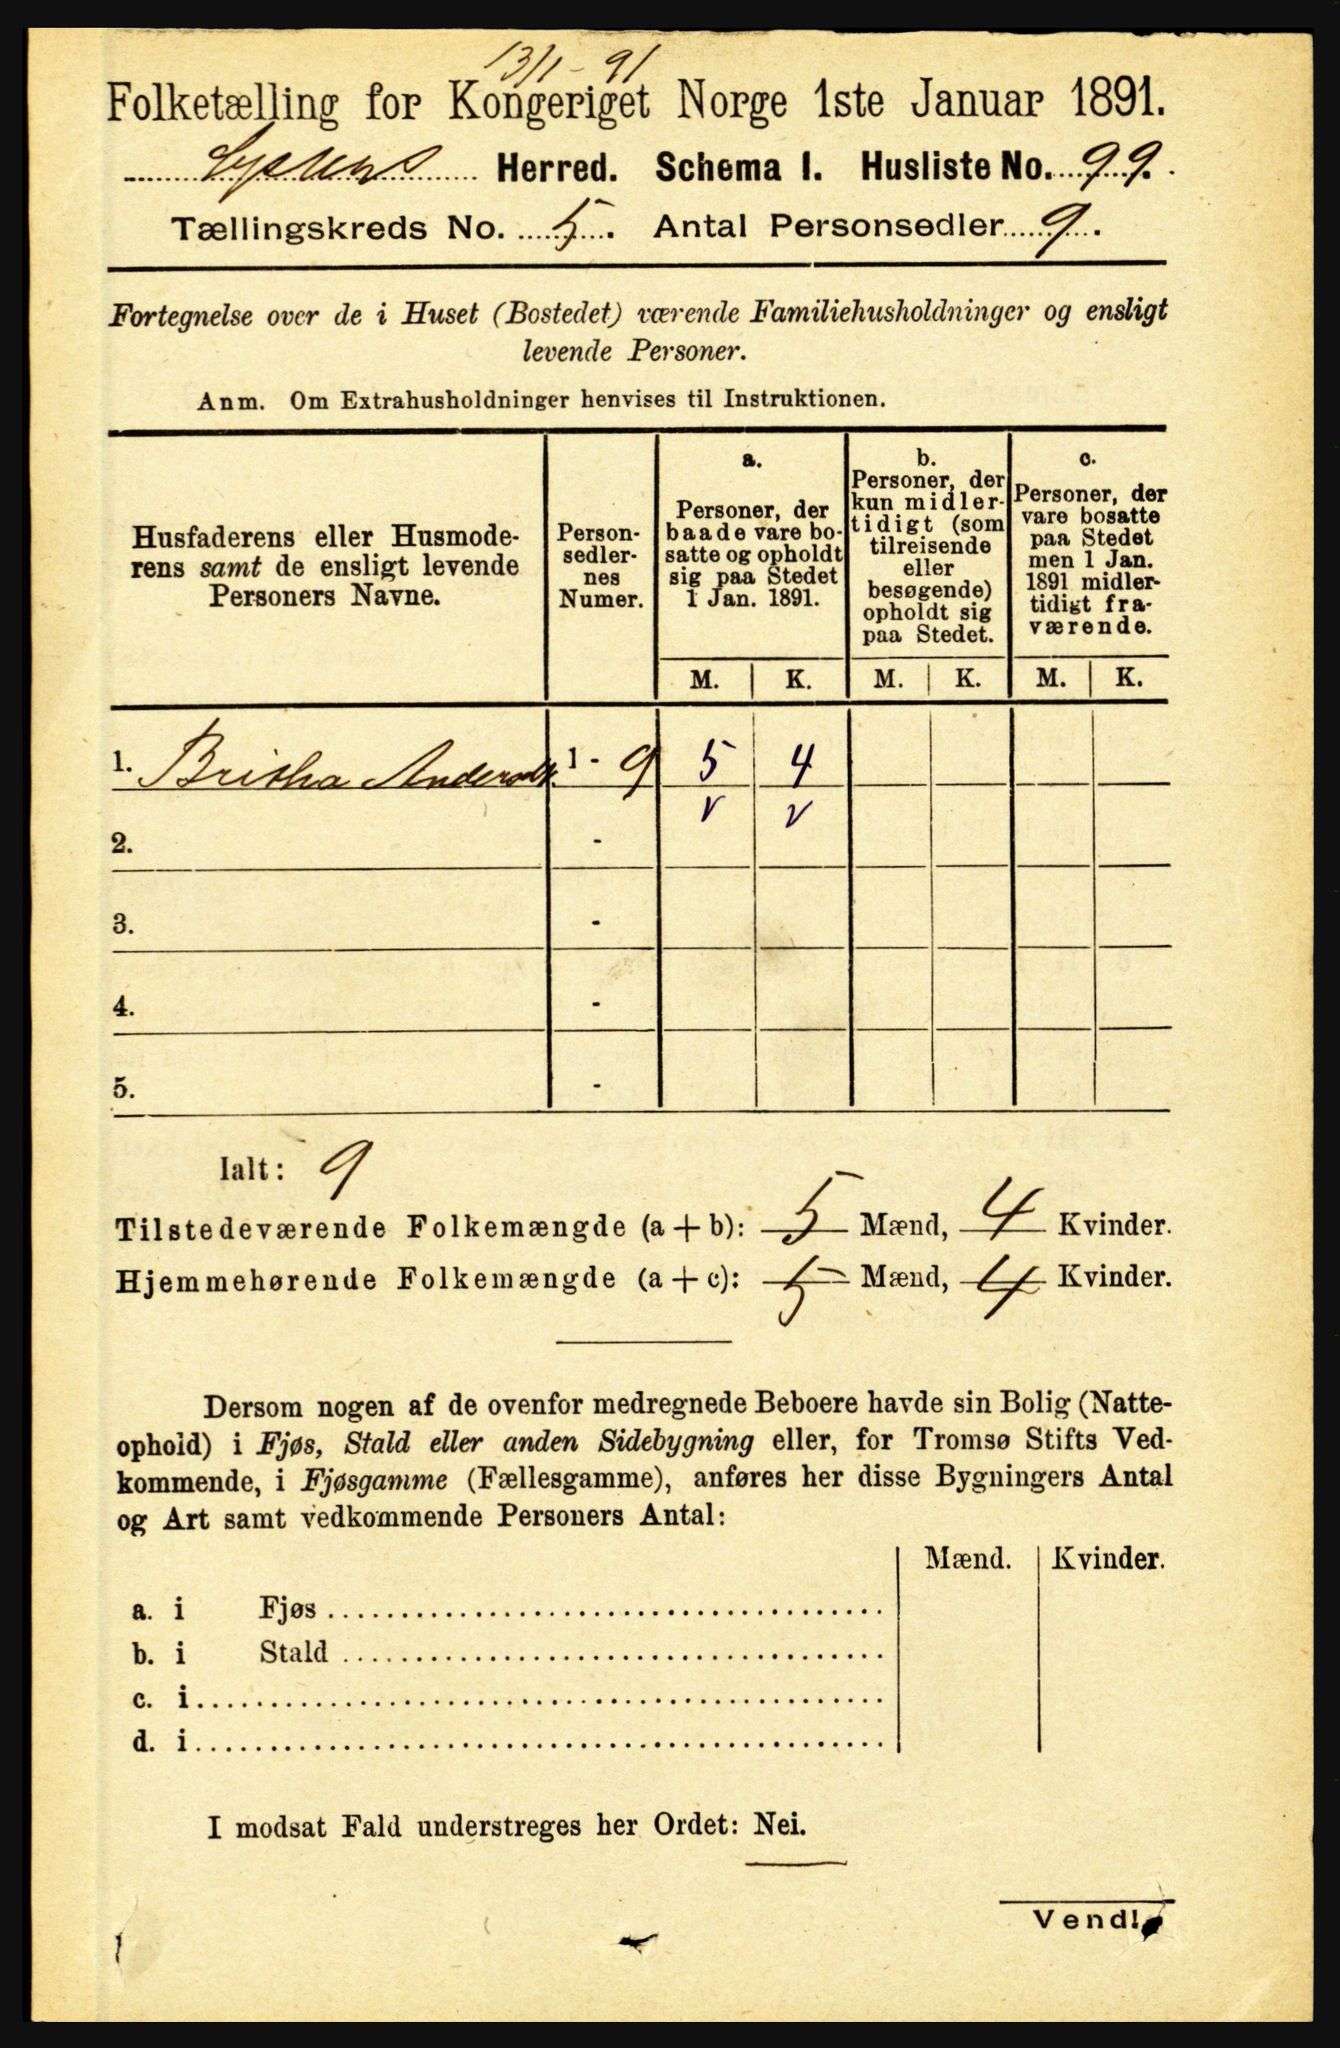 13/1-91
Folketælling for Kongeriget Norge 1ste Januar 1891.
Lysters Herred. Schema I. Husliste No. 99.
Tællingskreds No. 5. Antal Personsedler 9.
Fortegnelse over de i Huset (Bostedet) værende Familiehusholdninger og ensligt
levende Personer.
Anm. Om Extrahusholdninger henvises til Instruktionen.
Husfaderens eller Husmode-
rens samt de ensligt levende
Personers Navne.
Person-
sedler-
nes
Numer.
a.
Personer, der
baade vare bo-
satte og opholdt
sig paa Stedet
1 Jan. 1891.
b.
Personer, der
kun midler-
tidigt (som
tilreisende
eller
besøgende)
opholdt sig
paa Stedet.
c.
Personer, der
vare bosatte
paa Stedet
men 1 Jan.
1891 midler-
tidigt fra-
værende.
M. K. M. K. M. K.
1. Britha Andersdt. 1 - 9 5 4
v v
2. -
3. -
4. -
5. -
Ialt: 9
Tilstedeværende Folkemængde (a + b): 5 Mænd, 4 Kvinder.
Hjemmehørende Folkemængde (a + c): 5 Mænd, 4 Kvinder.
Dersom nogen af de ovenfor medregnede Beboere havde sin Bolig (Natte-
ophold) i Fjøs, Stald eller anden Sidebygning eller, for Tromsø Stifts Ved-
kommende, i Fjøsgamme (Fællesgamme), anføres her disse Bygningers Antal
og Art samt vedkommende Personers Antal:
Mænd. Kvinder.
a. i Fjøs
b. i Stald
c. i
d. i
I modsat Fald understreges her Ordet: Nei.
Vend!